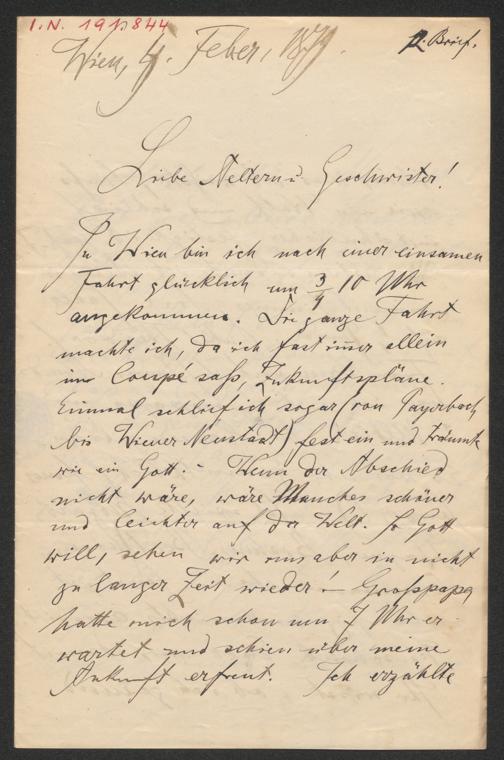 I.N. 191.844
2. Brief.
Wien, 4. Feber, 1879.
Liebe Aeltern u. Geschwister!
In Wien bin ich nach einer einsamen
Fahrt glücklich um 3/4 10 Uhr
angekommen. Die ganze Fahrt
machte ich, da ich fast im̄er allein
im Coupé saß, Zukunftspläne.
Einmal schlief ich sogar (von Payerbach
bis Wiener Neustadt) fest ein und träumte
wie ein Gott. – Wenn der Abschied
nicht wäre, wäre Manches schöner
und leichter auf der Welt. So Gott
will, sehen wir uns aber in nicht
zu langer Zeit wieder! – Großpapa
hatte mich schon um 7 Uhr er
wartet und schien über meine
Ankunft erfreut. Ich erzählte